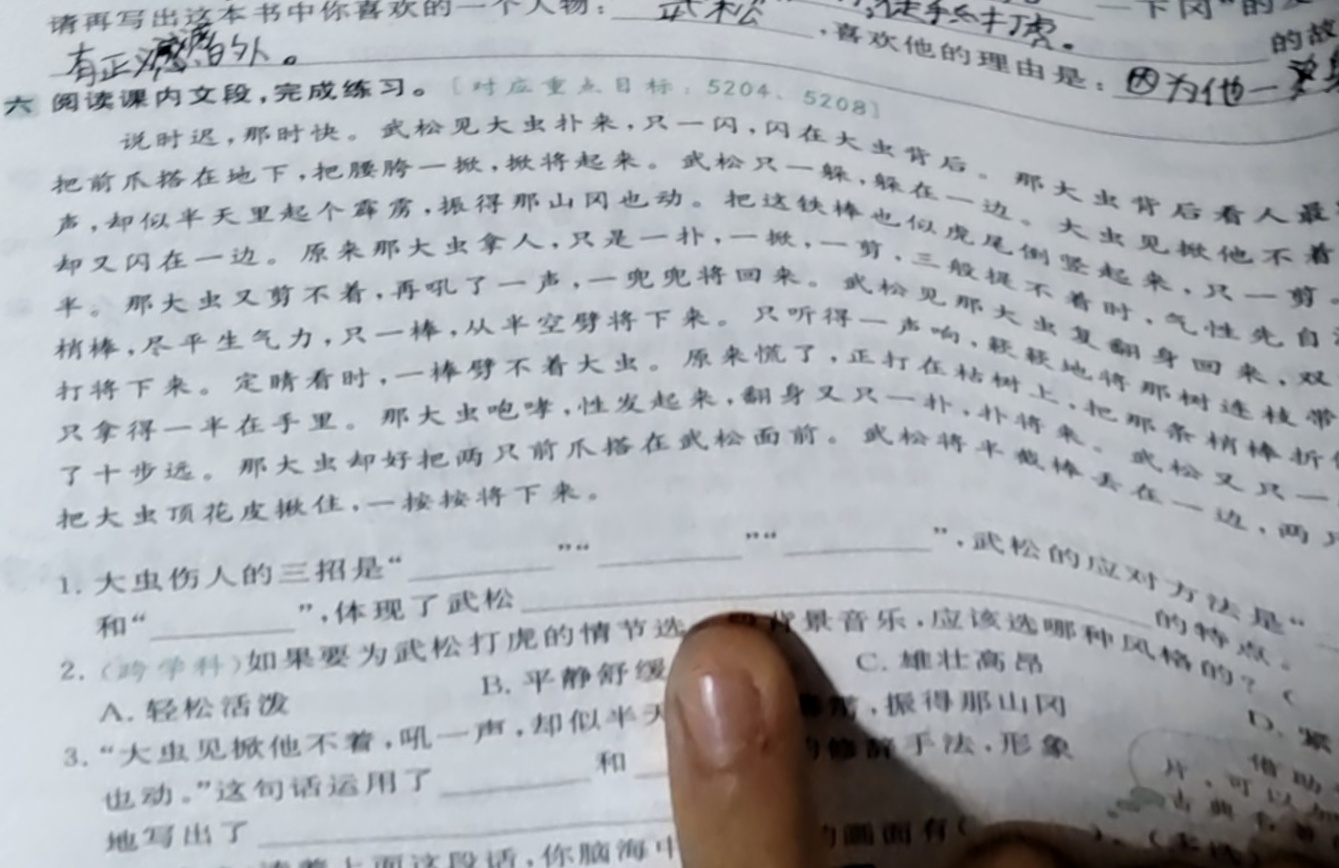 请再写出这本书中你喜欢的一个人物：武松，喜欢他的理由是：因为他一
有正 的人。
六 阅读课内文段，完成练习。［对应重点目标：5204、5208］
说时迟，那时快。武松见大虫扑来，只一闪，闪在大虫背后。那大虫背后看人最
把前爪搭在地下，把腰胯一掀，掀将起来。武松只一躲，躲在一边。大虫见掀他不着
声，却似半天里起个霹雳，振得那山冈也动。把这铁棒也似虎尾倒竖起来，只一剪
却又闪在一边。原来那大虫拿人，只是一扑，一掀，一剪，三般提不着时，气性先自
半。那大虫又剪不着，再吼了一声，一兜兜将回来。武松见那大虫复翻身回来，双
梢棒，尽平生气力，只一棒，从半空劈将下来。只听得一声响，簌簌地将那树连枝带
打将下来。定睛看时，一棒劈不着大虫。原来慌了，正打在枯树上，把那条梢棒折
只拿得一半在手里。那大虫咆哮，性发起来，翻身又只一扑，扑将来。武松又只一
了十步远。那大虫却好把两只前爪搭在武松面前。武松将半截棒丢在一边，两
把大虫顶花皮揪住，一按按将下来。
1. 大虫伤人的三招是“______”“______”“______”，武松的应对方法是“
和“______”，体现了武松______的特点。
2.（跨学科）如果要为武松打虎的情节选 背景音乐，应该选哪种风格的？（
A. 轻松活泼 B. 平静舒缓 C. 雄壮高昂 D. 紧
3. “大虫见掀他不着，吼一声，却似半天 ，振得那山冈
也动。”这句话运用了______和______的修辞手法，形象
地写出了______
借助
片，可以
古典名著
读着上面这段话，你脑海中 的画面有（ ）。